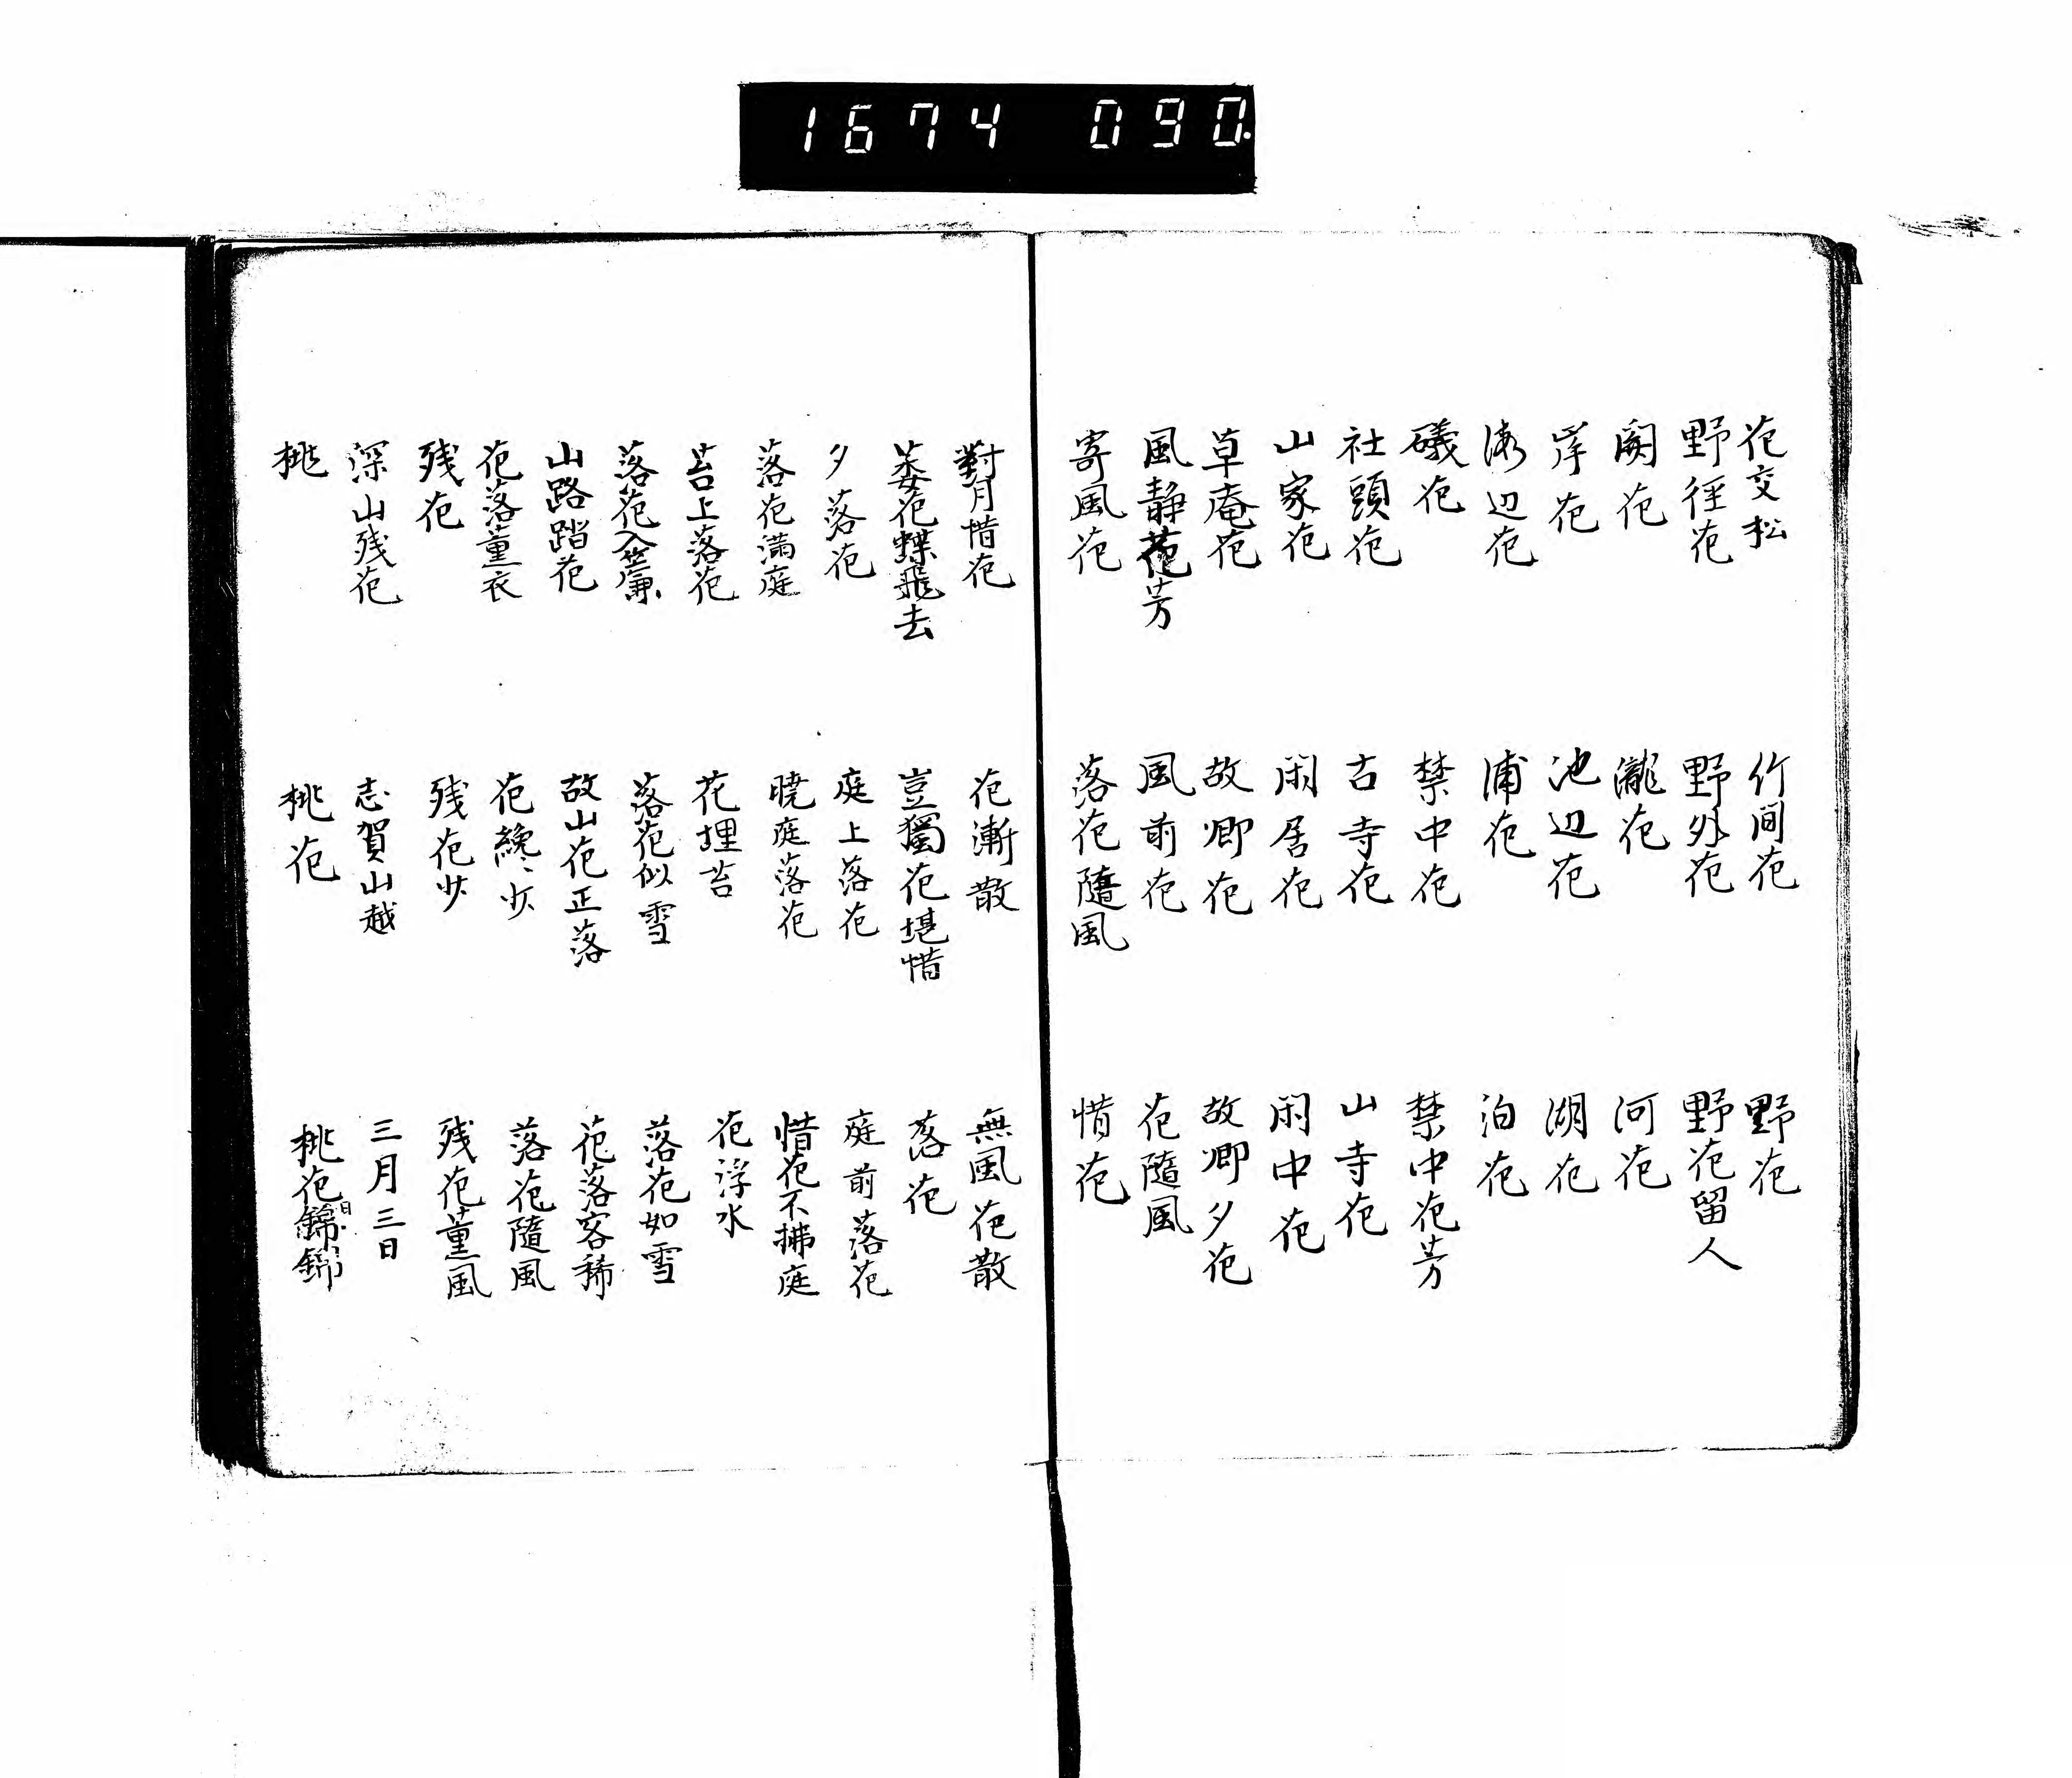 1674 090.
花交松　竹間花　野花
野径花　野外花　野花留人
関花　瀧花　河花
岸花　池辺花　湖花
海辺花　浦花　泊花
礒花　禁中花　禁中花芳
社頭花　古寺花　山寺花
山家花　閑居花　閑中花
草庵花　故郷花　故郷夕花
風静花芳　風前花　花隨風
寄風花　落花隨風　惜花
對月惜花　花漸散　無風花散
萎花蝶飛去　豈獨花堪惜　落花
夕落花　庭上落花　庭前落花
落花満庭　暁庭落花　惜花不拂庭
苔上落花　花埋苔　花浮水
落花入簾　落花似雪　落花如雪
山路踏花　故山花正落　花落客稀
花落薫衣　花纔少　落花隨風
残花　残花少　残花薫風
深山残花　志賀山越　三月三日
桃　桃花　桃花錦